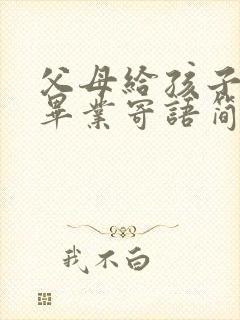 父母給孩子
畢業寄語簡
我不白